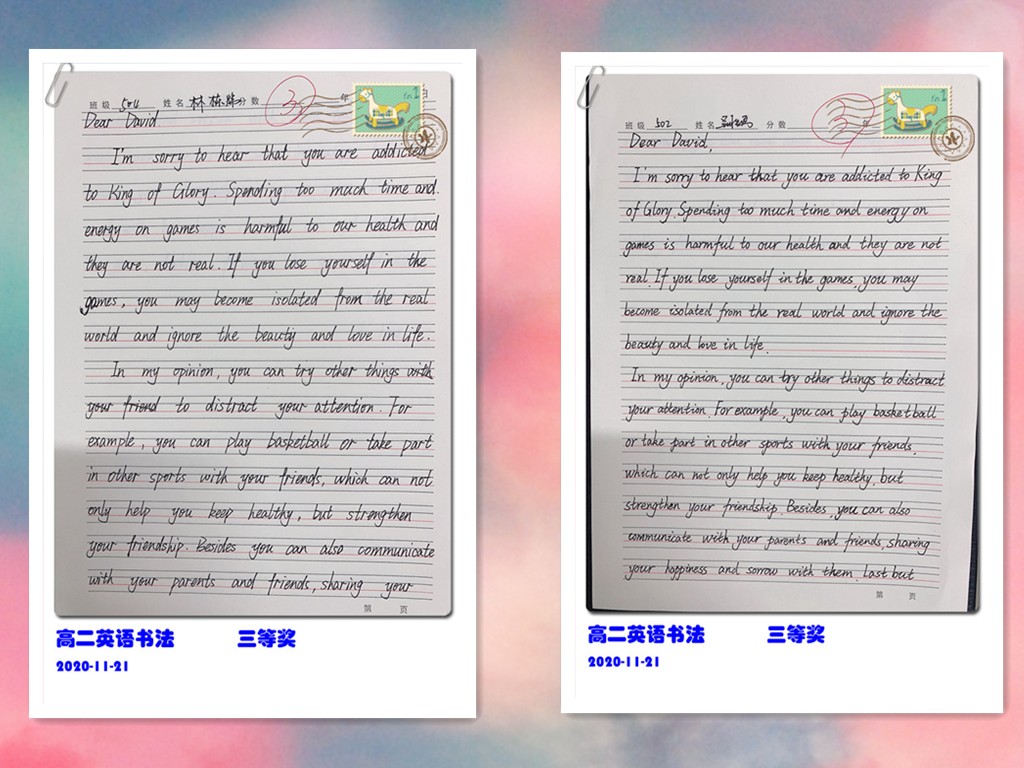 班级 504 姓名 林栋 分数 3 年 日
Dear David
I'm sorry to hear that you are addicted
to King of Glory. Spending too much time and
energy on games is harmful to our health and
they are not real. If you lose yourself in the
games, you may become isolated from the real
world and ignore the beauty and love in life.
In my opinion, you can try other things with
your friend to distract your attention. For
example, you can play basketball or take part
in other sports with your friends, which can not
only help you keep healthy, but strengthen
your friendship. Besides you can also communicate
with your parents and friends, sharing your
第 页
高二英语书法 三等奖
2020-11-21
班级 502 姓名 分数 3 年
Dear David,
I'm sorry to hear that you are addicted to King
of Glory. Spending too much time and energy on
games is harmful to our health and they are not
real. If you lose yourself in the games, you may
become isolated from the real world and ignore the
beauty and love in life.
In my opinion, you can try other things to distract
your attention. For example, you can play basketball
or take part in other sports with your friends,
which can not only help you keep healthy, but
strengthen your friendship. Besides, you can also
communicate with your parents and friends, sharing
your happiness and sorrow with them. Last but
第 页
高二英语书法 三等奖
2020-11-21